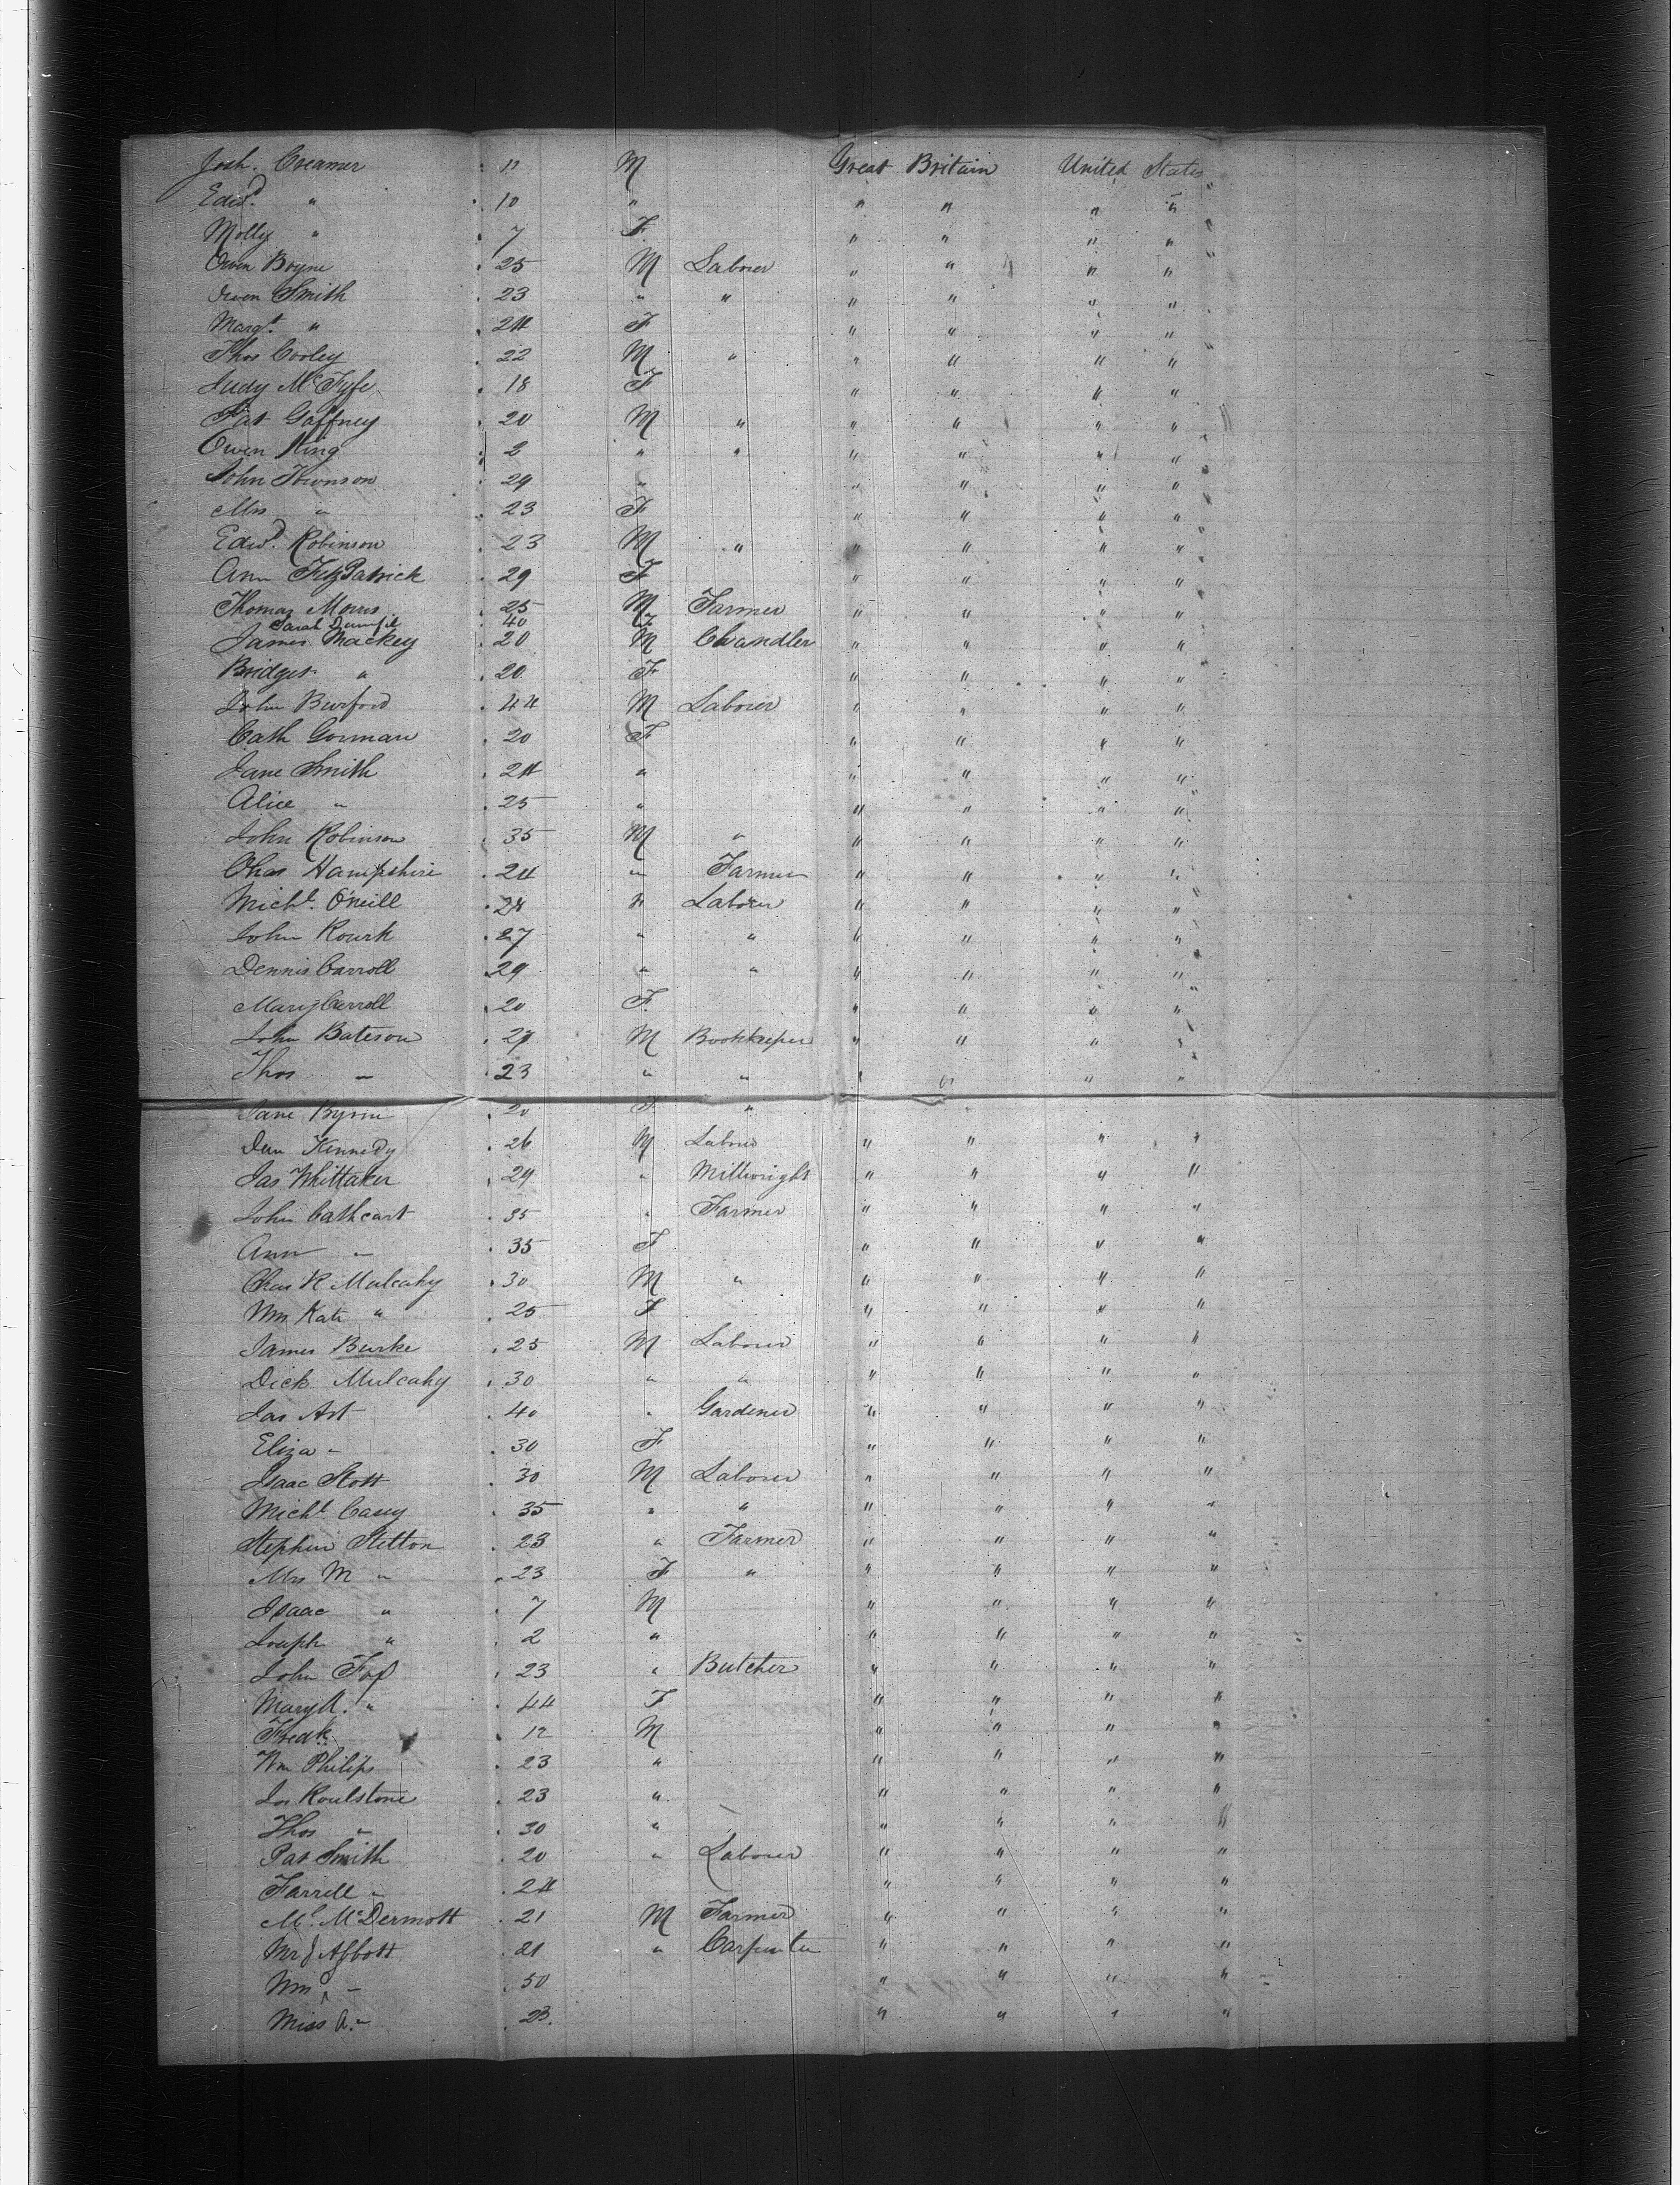 Josh. Creamer 11 M Great Britain United States
Edwd. " 10 " " " " "
Molly " 7 F " " " "
Owen Boyne 25 M Laborer " " " "
Owen Smith 23 " " " " " "
Margt. " 24 F " " " "
Thos Cooley 22 M " " " " "
Judy McFyfe 18 F " " " "
Pat Gaffney 20 M " " " " "
Owen King 2 " " " " " "
John Townson 29 " " " " "
Mrs " 23 F " " " "
Edwd. Robinson 23 M " " " " "
Ann FitzPatrick 29 F " " " "
Thomas Morris 25 M Farmer " " " "
Sarah 40 F
James Mackey 20 M Chandler " " " "
Bridget " 20 F " " " "
John Burford 44 M Laborer " " " "
Cath Gorman 20 F " " " "
Jane Smith 24 " " " " "
Alice " 25 " " " " "
John Robinson 35 M " " " " "
Chas Hampshire 24 " Farmer " " " "
Michl. O'Neill 28 " Laborer " " " "
John Rourk 27 " " " " " "
Dennis Carroll 29 " " " " " "
Mary Carroll 20 F " " " "
John Bateson 27 M Bookkeeper " " " "
Thos " 23 " " " " " "
Jane Byrne 20 F "
Dan Kennedy 26 M Laborer " " " "
Jas Whittaker 29 " Millwright " " " "
John Cathcart 35 " Farmer " " " "
Ann " 35 F " " " "
Chas R Mulcahy 30 M " " " " "
Mrs Kate " 25 F " " " "
James Burke 25 M Laborer " " " "
Dick Mulcahy 30 " " " " " "
Jas Ast 40 " Gardener " " " "
Eliza " 30 F " " " "
Isaac Stott 30 M Laborer " " " "
Michl. Casey 35 " " " " " "
Stephen Stetton 23 " Farmer " " " "
Mrs M " 23 F " " " " "
Isaac " 7 M " " " "
Joseph " 2 " " " " "
John Fox 23 " Butcher " " " "
Mary A. " 44 F " " " "
Fredk 12 M " " " "
Wm Philips 23 " " " " "
Jos Roulstone 23 " " " " "
Thos " 30 " " " " "
Pat Smith 20 " Laborer " " " "
Farrell " 24 " " " "
Ml. McDermott 21 M Farmer " " " "
Mr J Abbott 21 " Carpenter " " " "
Wm " 50 " " " "
Miss A. " 23. " " " "